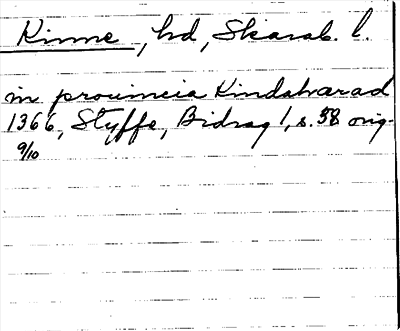 Kinne, hd, Skarab. l.
in provincia Kindahærad
1366, Styffe, Bidrag 1, s. 38 orig.
9/10